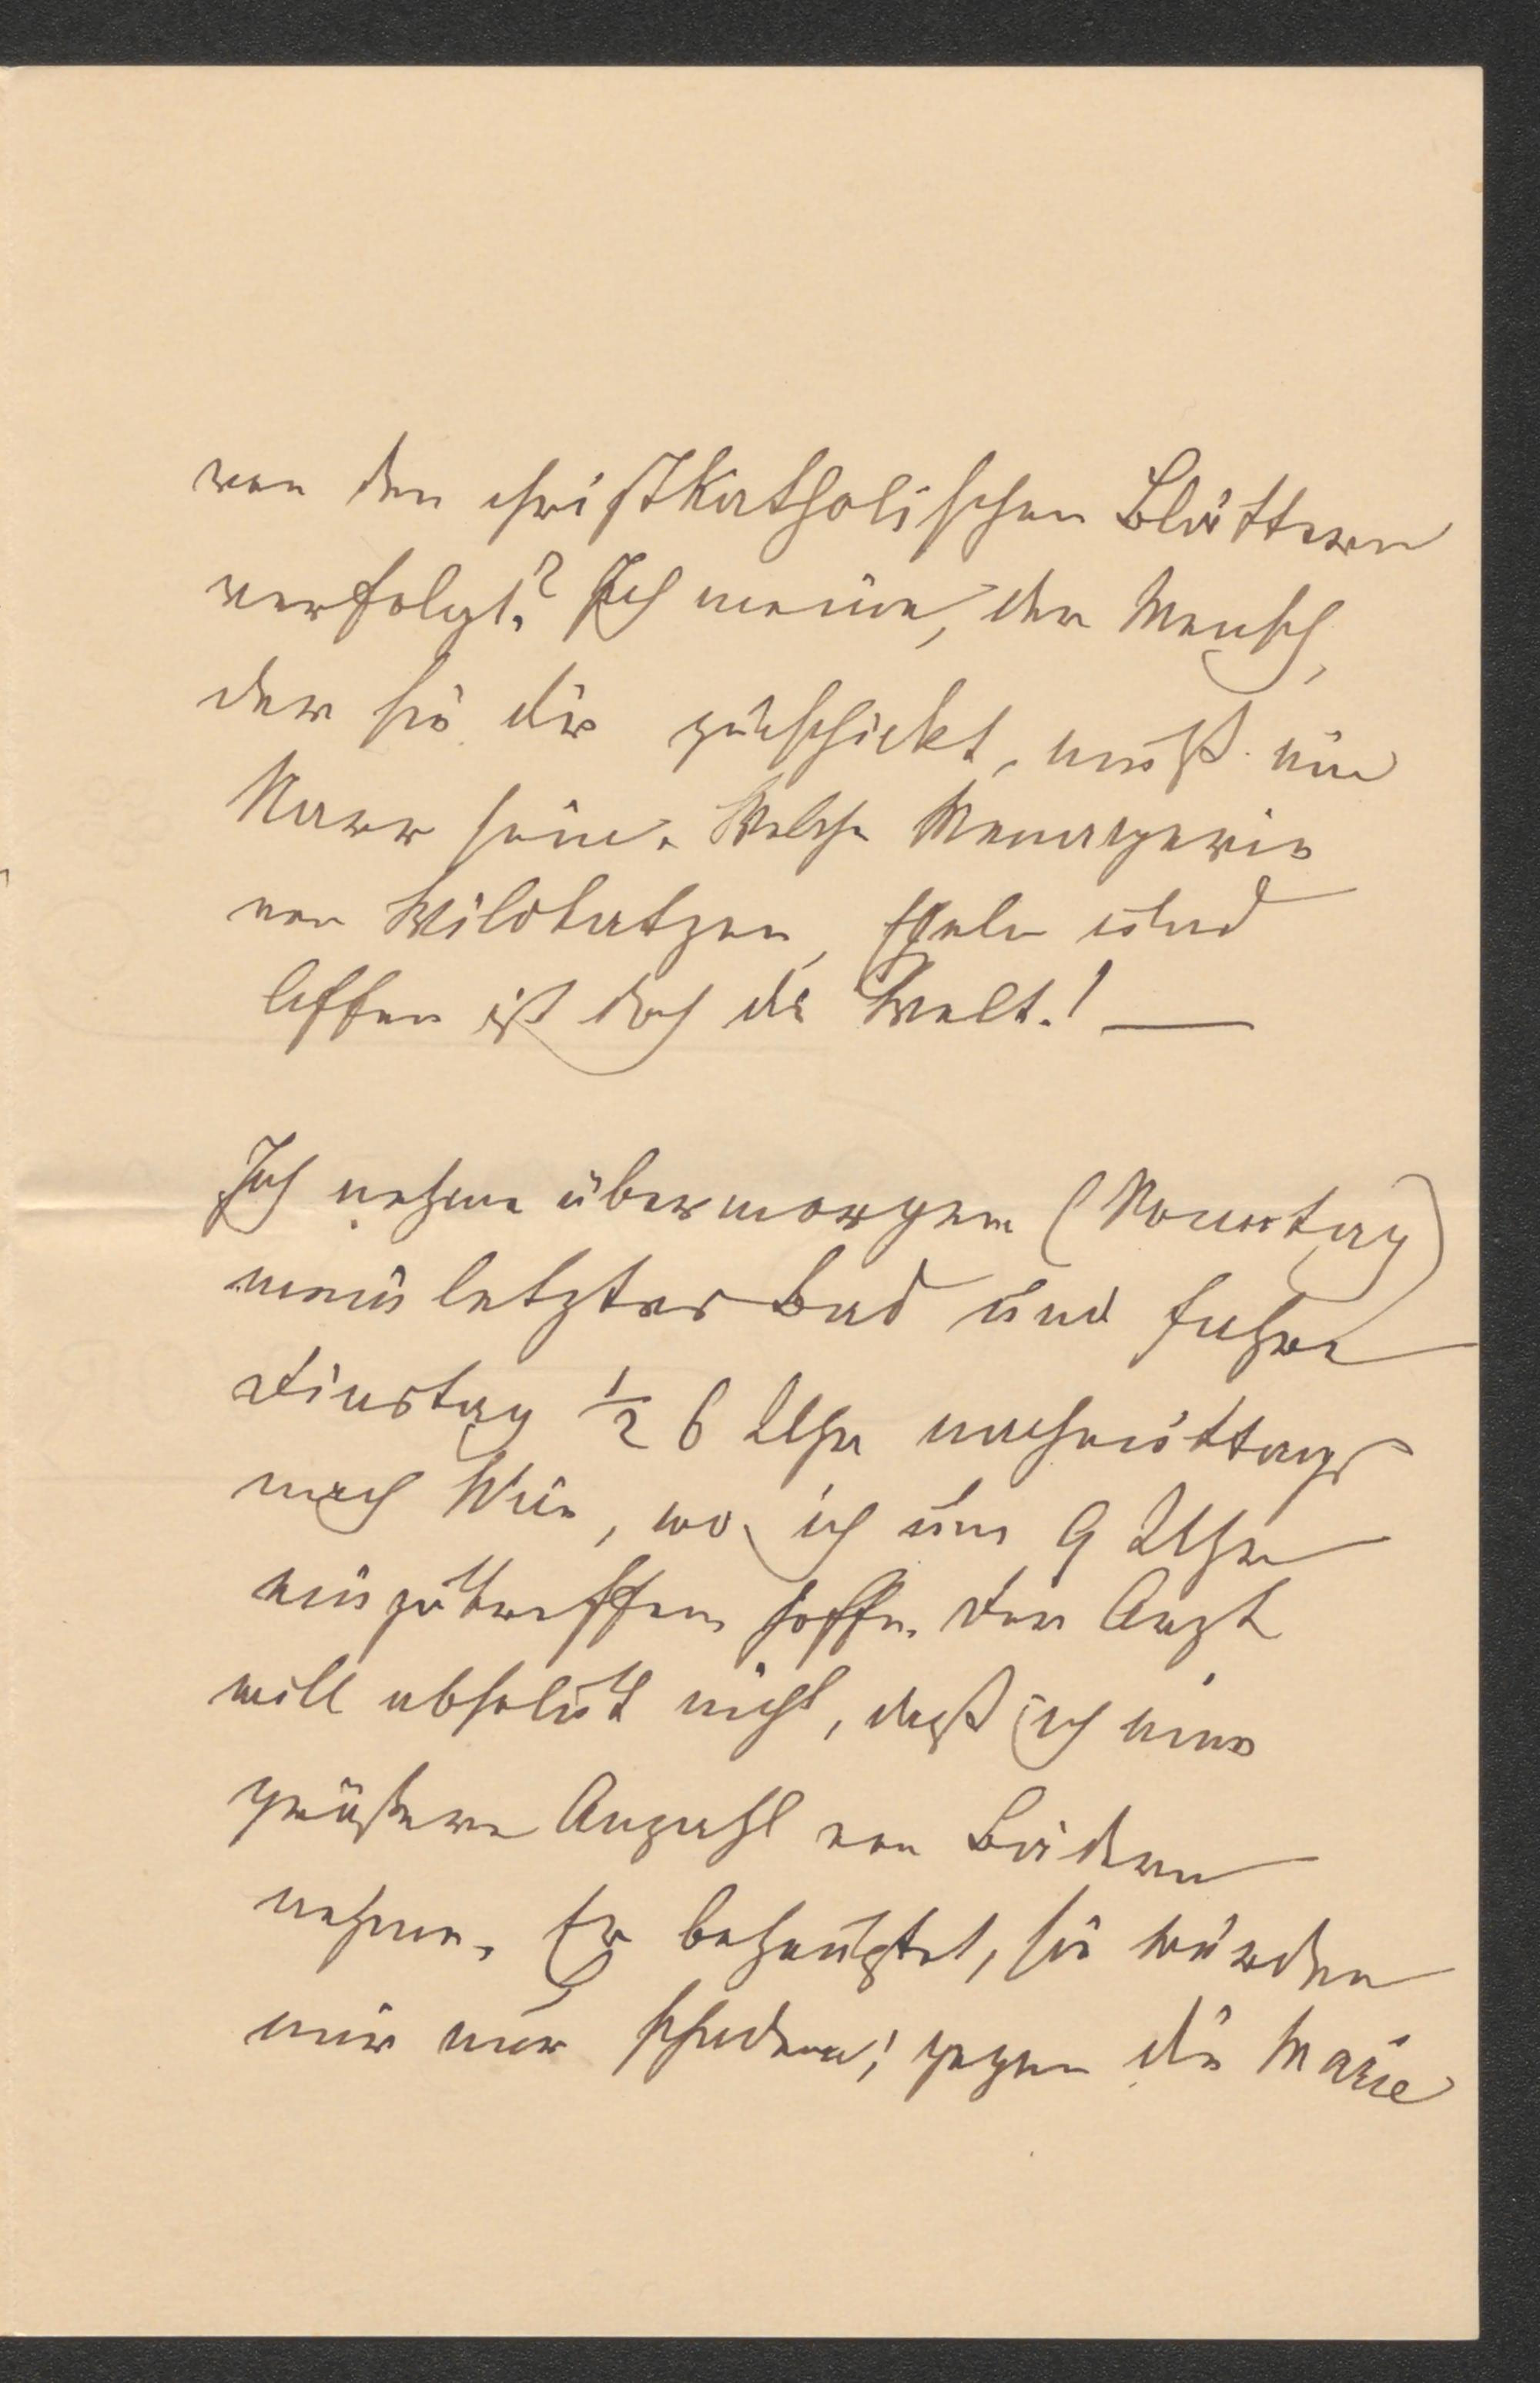 von den christkatholischen Blättern
verfolgt? Ich meine, der Mensch,
der sie dir zuschickt, muß ein
Narr sein. Welche Menagerie
von Wildkatzen, Eseln und
Affen ist doch die Welt! —
Ich nehme übermorgen (Sonntag)
mein letztes Bad und fahre
Dienstag ½ 6 Uhr nachmittags
nach Wien, wo ich um 9 Uhr
einzutreffen hoffe. Der Arzt
will absolut nicht, daß ich eine
größere Anzahl von Bädern
nehme. Er behauptet, sie würden
mir nur schaden; gegen die Marie